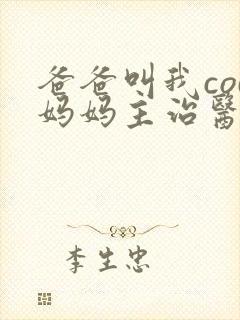 爸爸叫我co
妈妈主治醫
李生忠